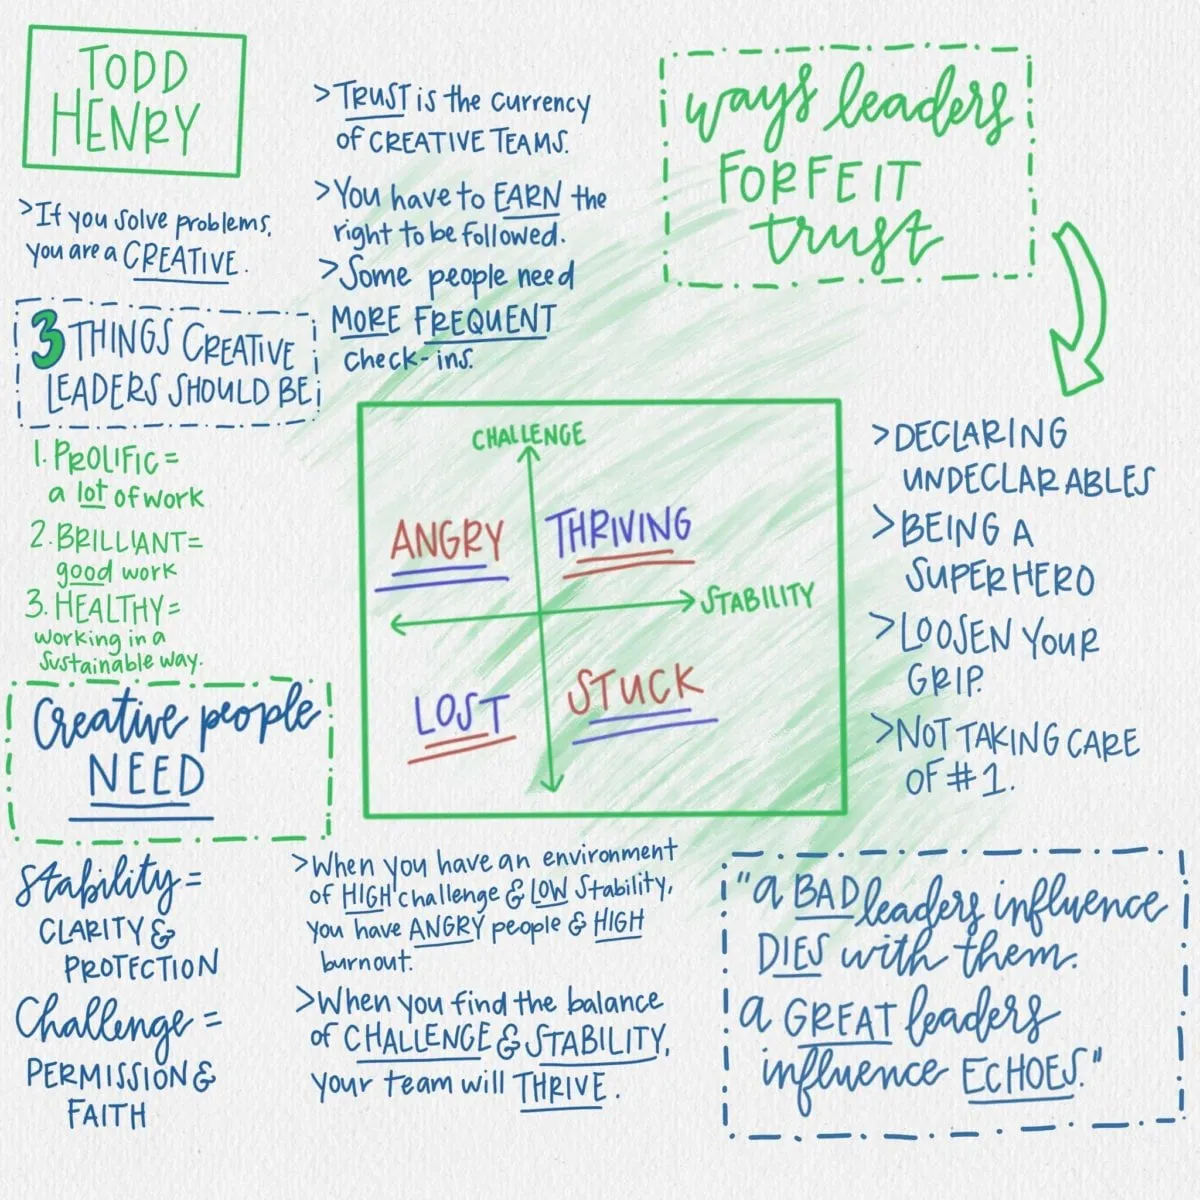 TODD
HENRY
>If you solve problems,
you are a CREATIVE.
3 THINGS CREATIVE
LEADERS SHOULD BE
1. PROLIFIC =
a lot of work
2. BRILLIANT =
good work
3. HEALTHY =
working in a
sustainable way.
Creative people
NEED
Stability =
CLARITY &
PROTECTION
Challenge =
PERMISSION &
FAITH
>TRUST is the currency
of CREATIVE TEAMS.
>You have to EARN the
right to be followed.
>Some people need
MORE FREQUENT
check-ins.
CHALLENGE
ANGRY THRIVING
STABILITY
LOST STUCK
>When you have an environment
of HIGH challenge & LOW stability,
you have ANGRY people & HIGH
burnout.
>When you find the balance
of CHALLENGE & STABILITY,
your team will THRIVE.
ways leaders
FORFEIT
trust
>DECLARING
UNDECLARABLES
>BEING A
SUPERHERO
>LOOSEN YOUR
GRIP.
>NOT TAKING CARE
OF #1.
"a BAD leaders influence
DIES with them.
a GREAT leaders
influence ECHOES."